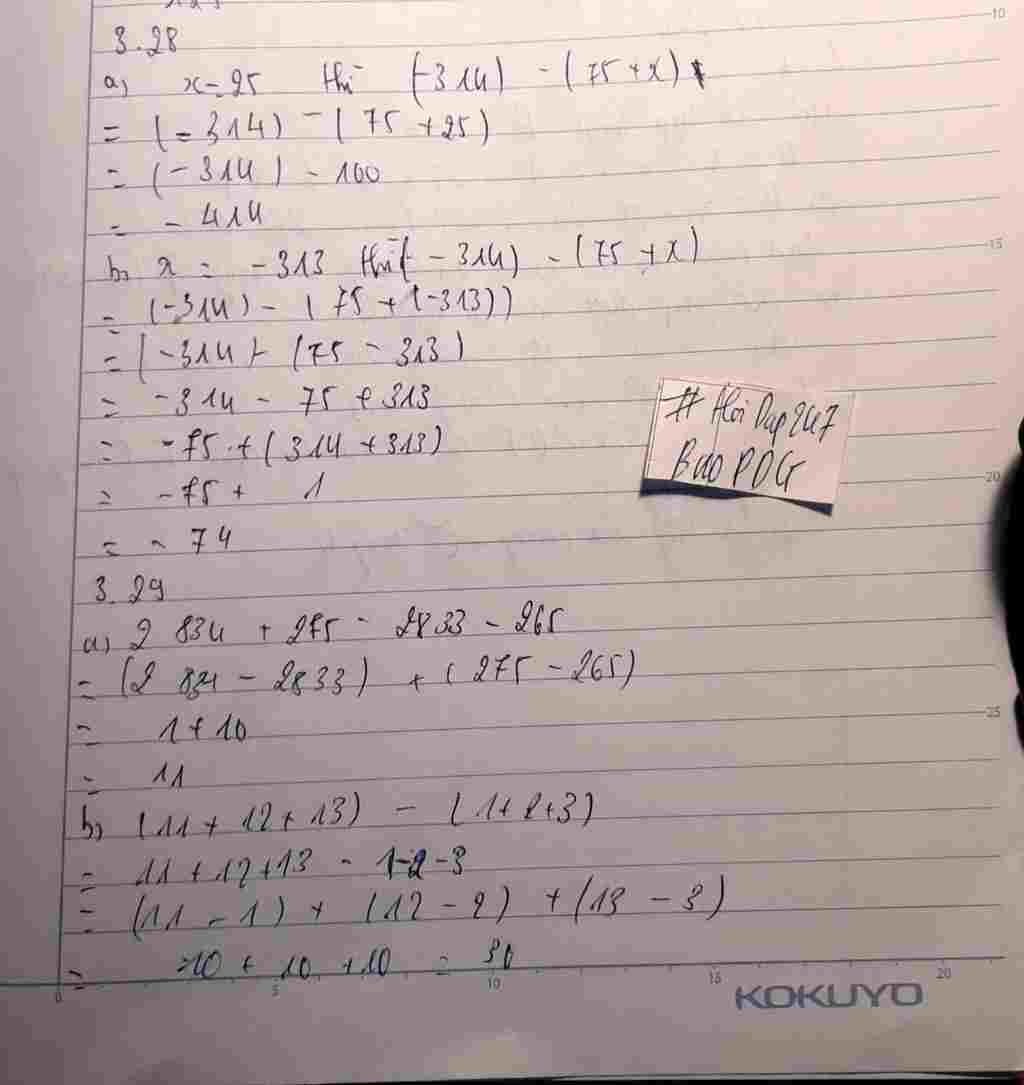 3.28
a) x = 25 thì (-314) - (75 + x)
= (-314) - (75 + 25)
= (-314) - 100
= - 414
b) x = -313 thì (-314) - (75 + x)
= (-314) - (75 + (-313))
= (-314) - (75 - 313)
= -314 - 75 + 313
= -75 + (314 + 313)
= -75 + 1
= - 74
# Hoi Dap 247
Bao PDG
3.29
a) 2 834 + 275 - 2833 - 265
= (2 834 - 2833) + (275 - 265)
= 1 + 10
= 11
b) (11 + 12 + 13) - (1 + 2 + 3)
= 11 + 12 + 13 - 1 - 2 - 3
= (11 - 1) + (12 - 2) + (13 - 3)
= 10 + 10 + 10 = 30
10
15
20
25
0 5 10 15 20
KOKUYO